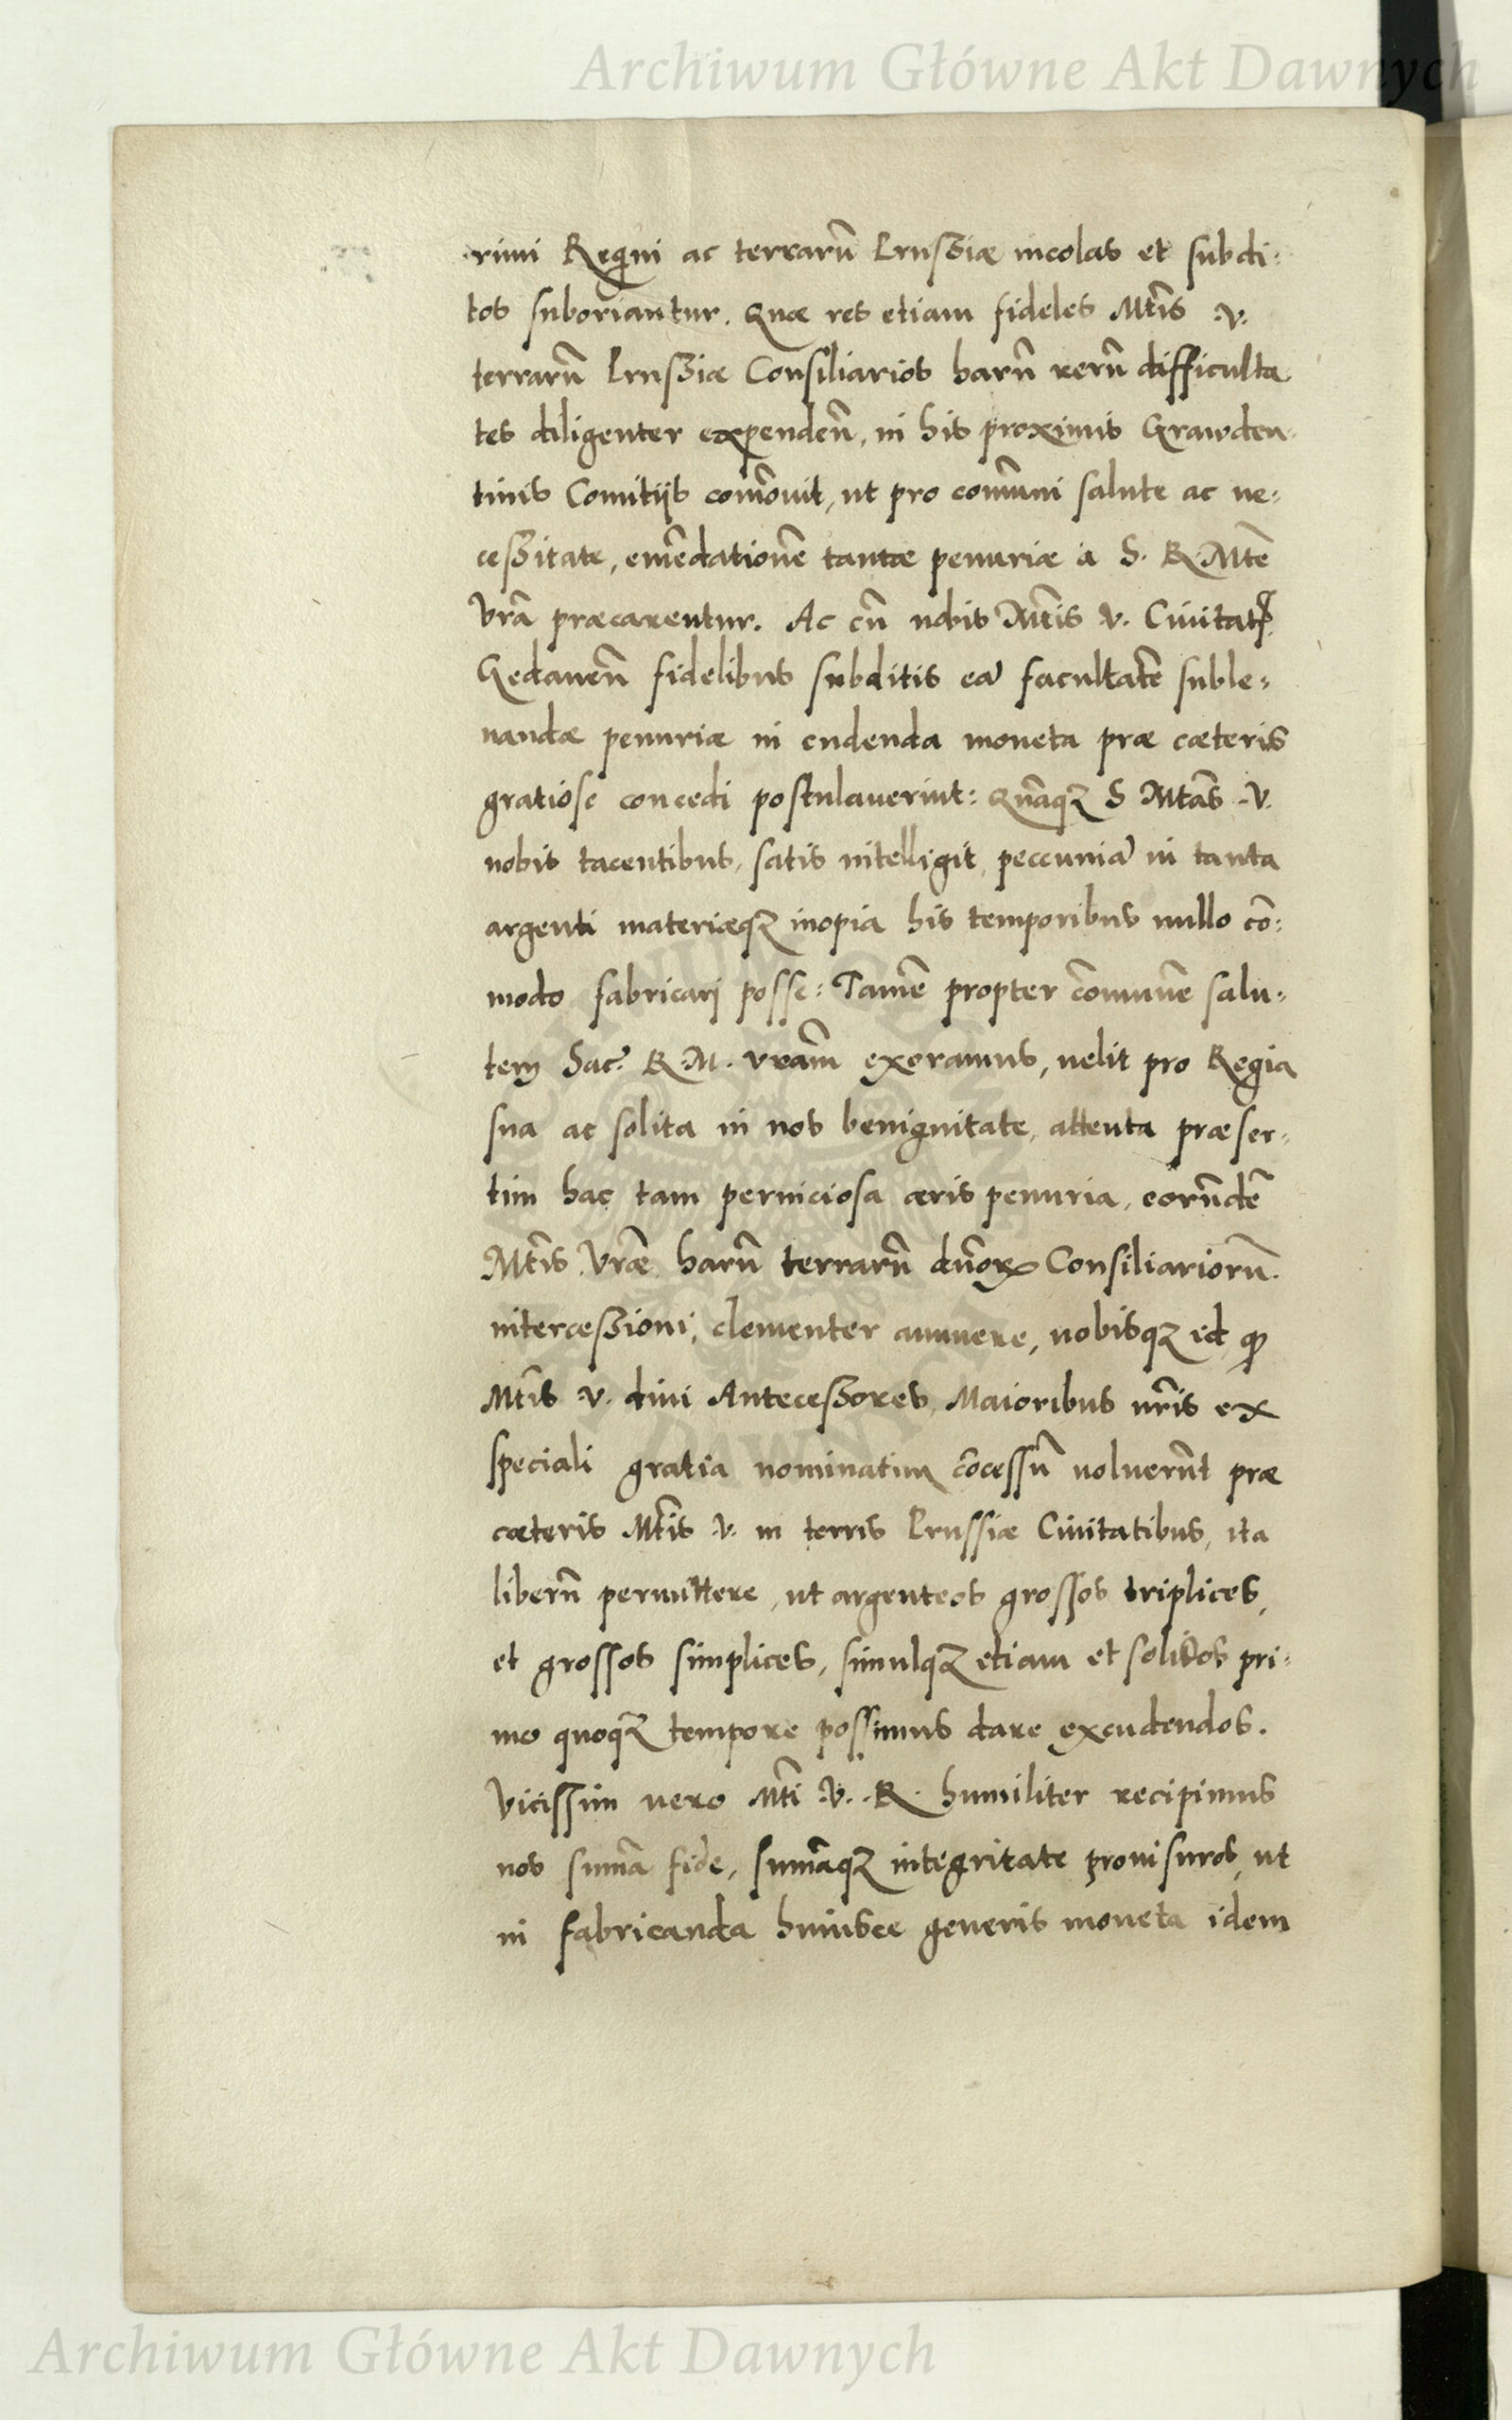 Archiwum Główne Akt Dawnych
rimi Regni ac terrarū Prußiæ incolas et subdi:
tos suboriantur. Quæ res etiam fideles Mtīs .V.
terrarū Prußiæ Consiliarios harū rerū difficulta
tes diligenter expendeñ, in his proximis Grawden-
tinis Comitijs com̄ouit, ut pro com̄uni salute ac ne:
ceßitate, emēdationē tantæ penuriæ à S. R. Mtē
Vrā præcarentur. Ac cū nobis Mtīs V. Ciuitatꝭ
Gedaneñ fidelibus subditis eā facultatē suble:
uandæ penuriæ in cudenda moneta præ cæteris
gratiose concedi postulauerint: Quāqꝫ S Mtās .V.
nobis tacentibus, satis intelligit, peccuniā in tanta
argenti materiæqꝫ inopia his temporibus nullo cō:
modo fabricarj posse: Tamē propter cōmunē salu:
tem Sac. R. M. vrām exoramus, uelit pro Regia
sua ac solita in nos benignitate, attenta præser:
tim hac tam perniciosa æris penuria, eorūdē
Mtīs Vrǣ harū terrarū dn̄oꝝ Consiliariorū
interceßioni, clementer annuere, nobisqꝫ id qđ
Mtīs .V. diui Anteceßores, Maioribus nr̄is ex
speciali gratia nominatim cōcessū uoluerūt præ
cæteris Mtīs V. in terris Prussiæ Ciuitatibus, ita
liberū permittere, ut argenteos grossos triplices,
et grossos simplices, simulqꝫ etiam et solidos pri:
mo quoqꝫ tempore possimus dare excudendos.
Vicissim uero Mtī .V. R. humiliter recipimus
nos sum̄a fide, sum̄aqꝫ integritate prouisuros, ut
in fabricanda huiusce generis moneta idem
Archiwum Główne Akt Dawnych